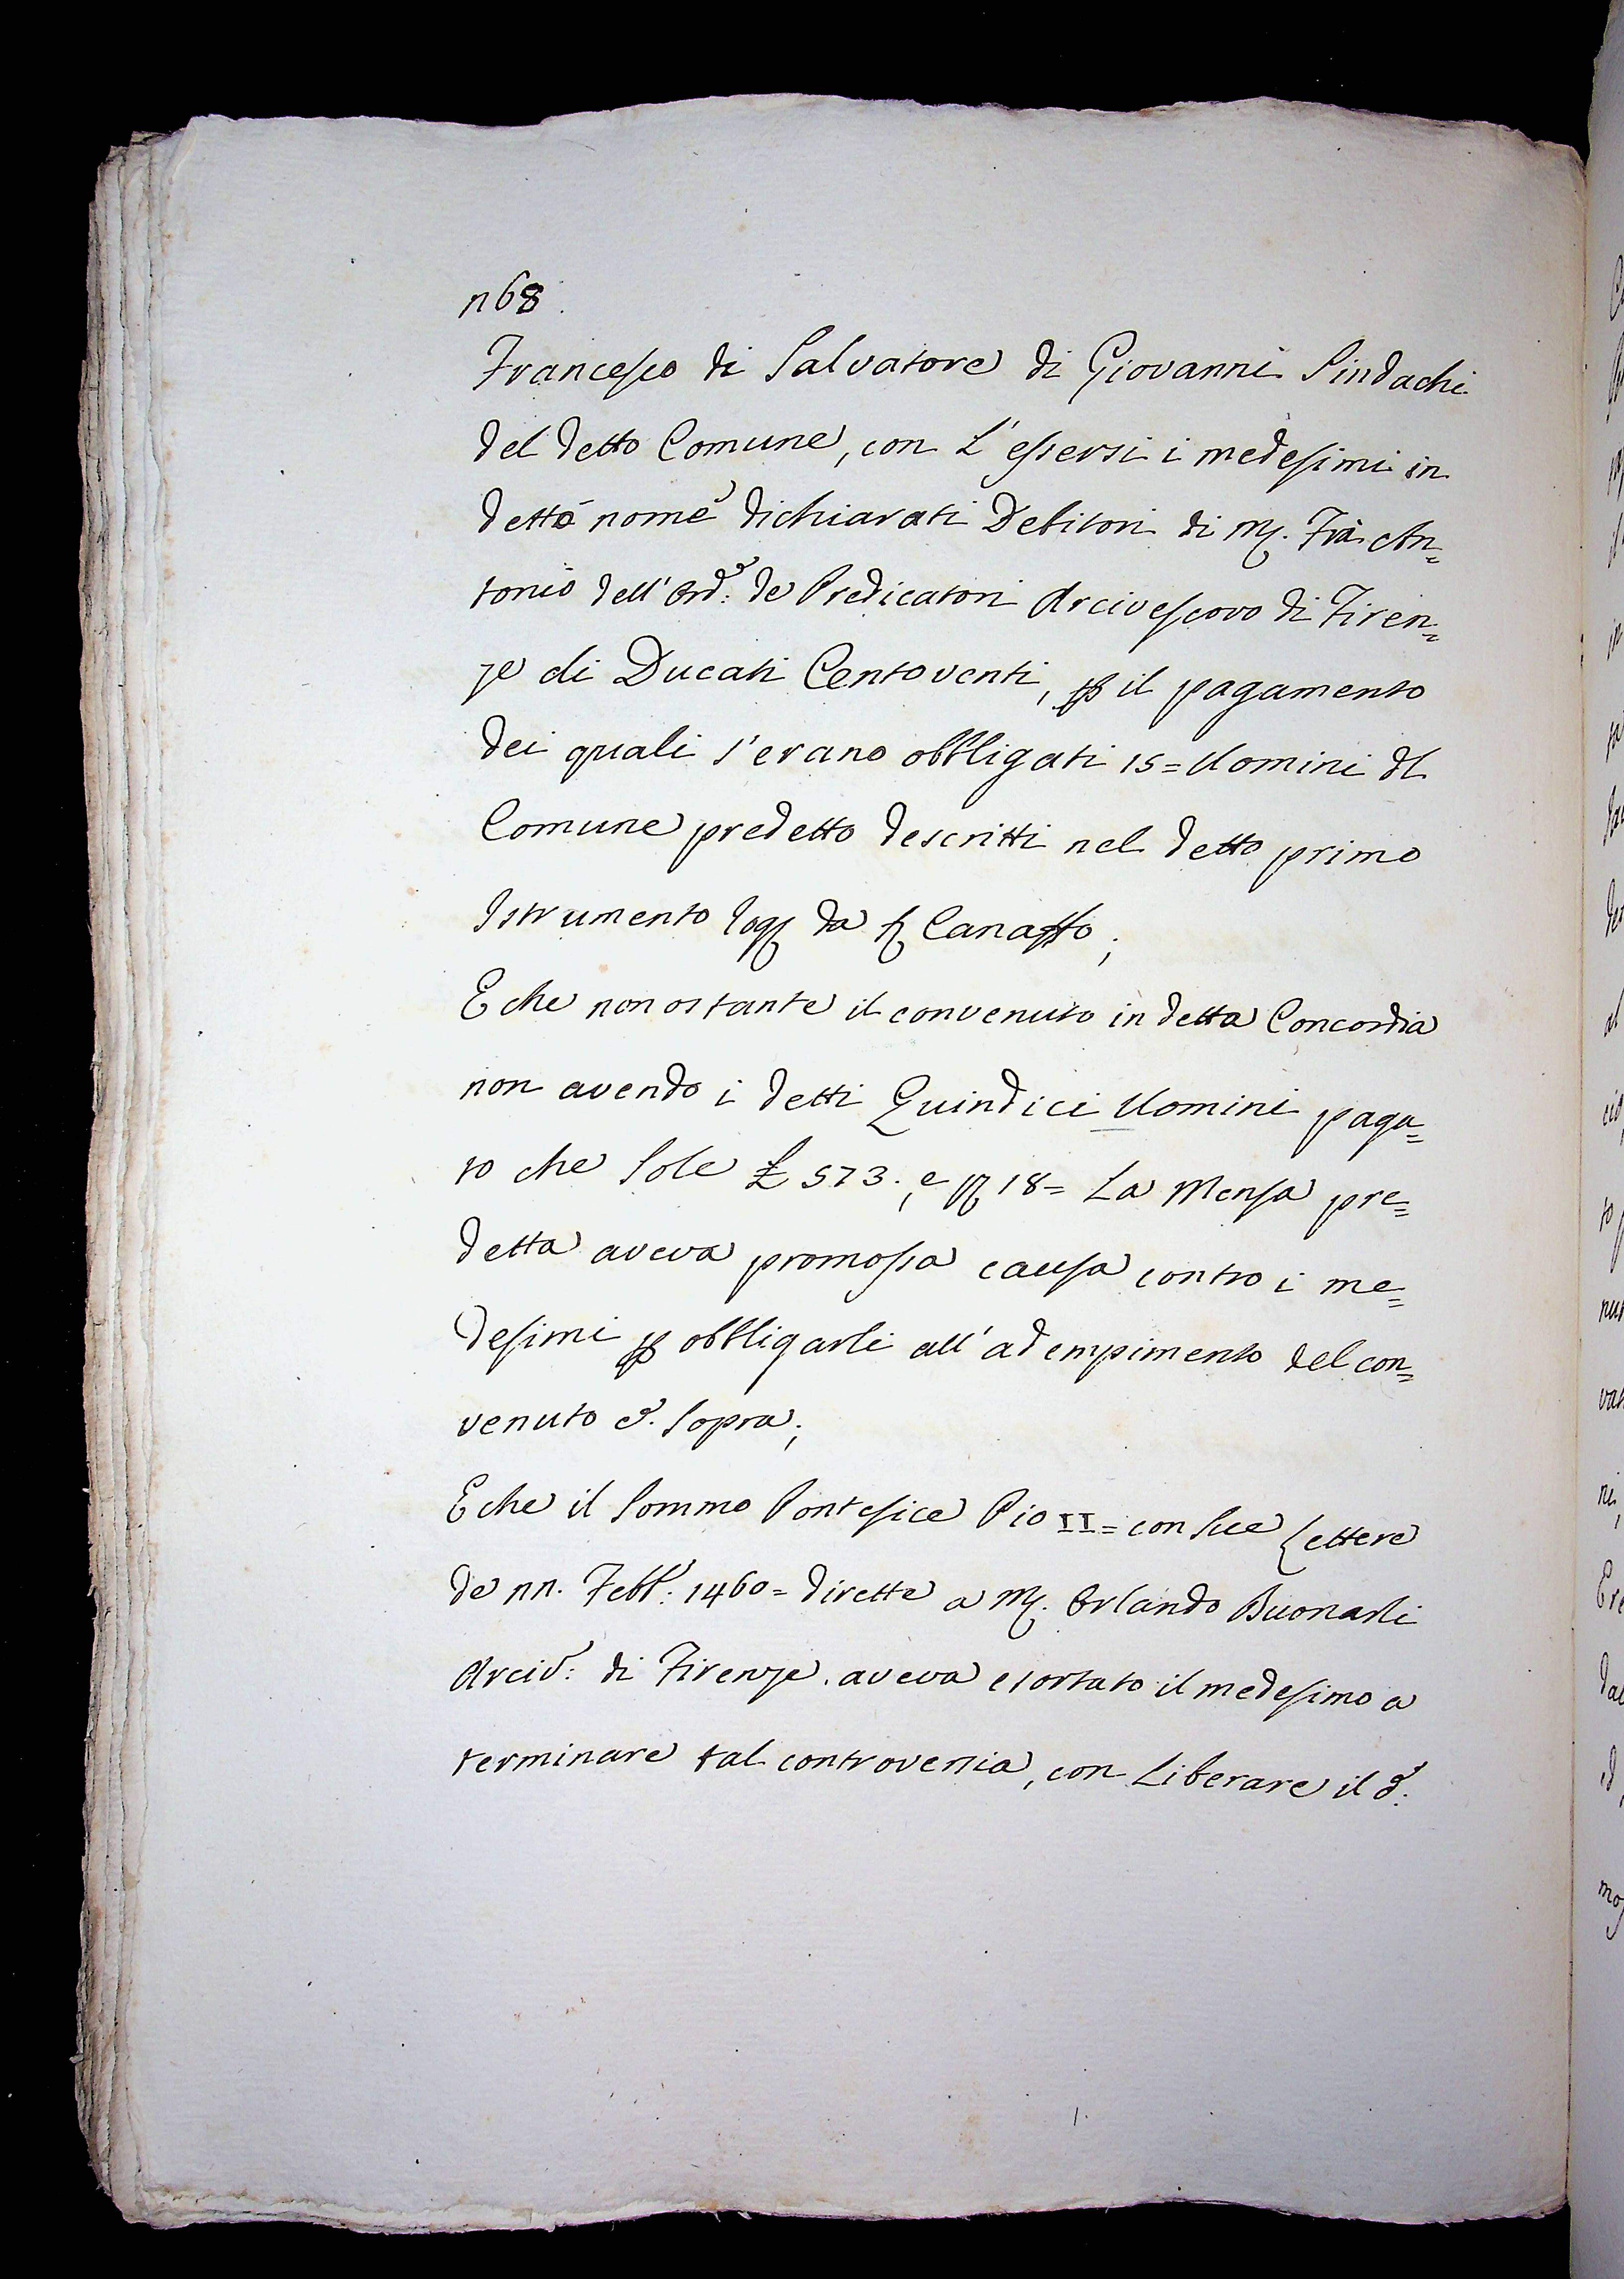 n68.
Francesco di Salvatore di Giovanni Sindachi
del detto Comune, con L'essersi i medesimi in
detto nome dichiarati Debitori di M. Frà An=
tonio dell' Ord.e de Predicatori Arcivescovo di Firen=
ze di Ducati Centoventi, p il pagamento
dei quali s'erano obbligati 15= Uomini dl
Comune predetto descritti nel detto primo
Istrumento rog da s Canasso;
E che non ostante il convenuto in detta Concordia
non avendo i detti Quindici Uomini paga=
to che sole £ 573. e 18= La Mensa pre=
detta aveva promossa causa contro i me=
desimi p obbligarli all' adempimento del con=
venuto d. sopra;
E che il Sommo Pontefice Pio II= con sue Lettere
de nn. Febb: 1460= dirette a M. Orlando Buonarli
Arciv: di Firenze aveva esortato il medesimo a
terminare tal controversia, con Liberare il d: